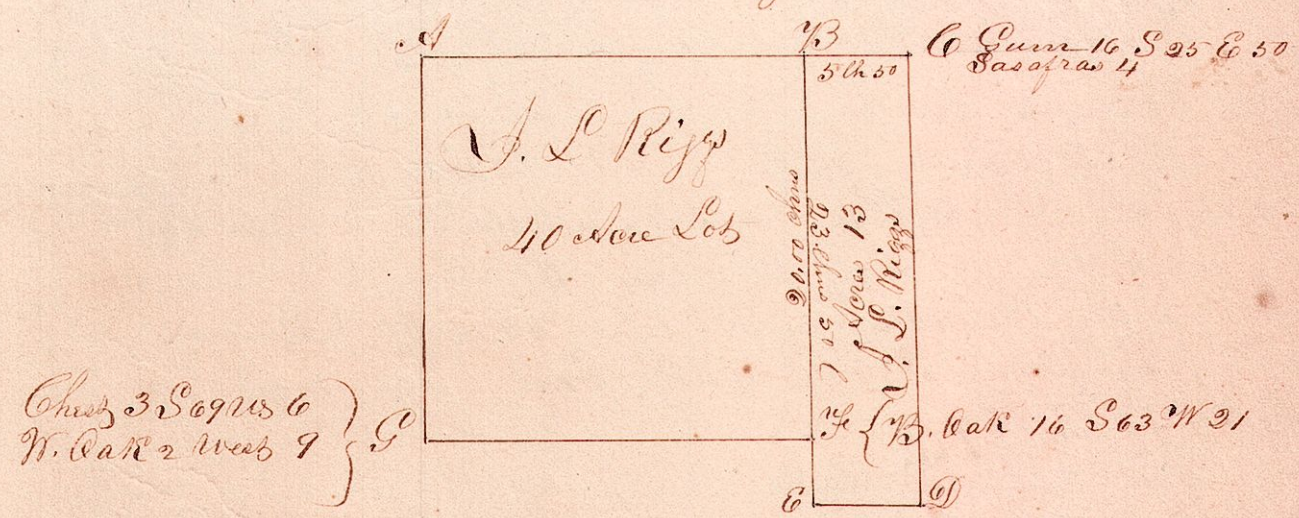 A
B
C Gum 16 S 25 E 50
Sasafras 4
5 Ch 50
J. L Riggs
40 Acre Lot
20.00 Chns
23 Chns 50 l
Acres 13
J. L. Riggs
Chest 3 S 69 W 6
W. Oak 2 West 9
G
F { B. Oak 16 S 63 W 21
E
D